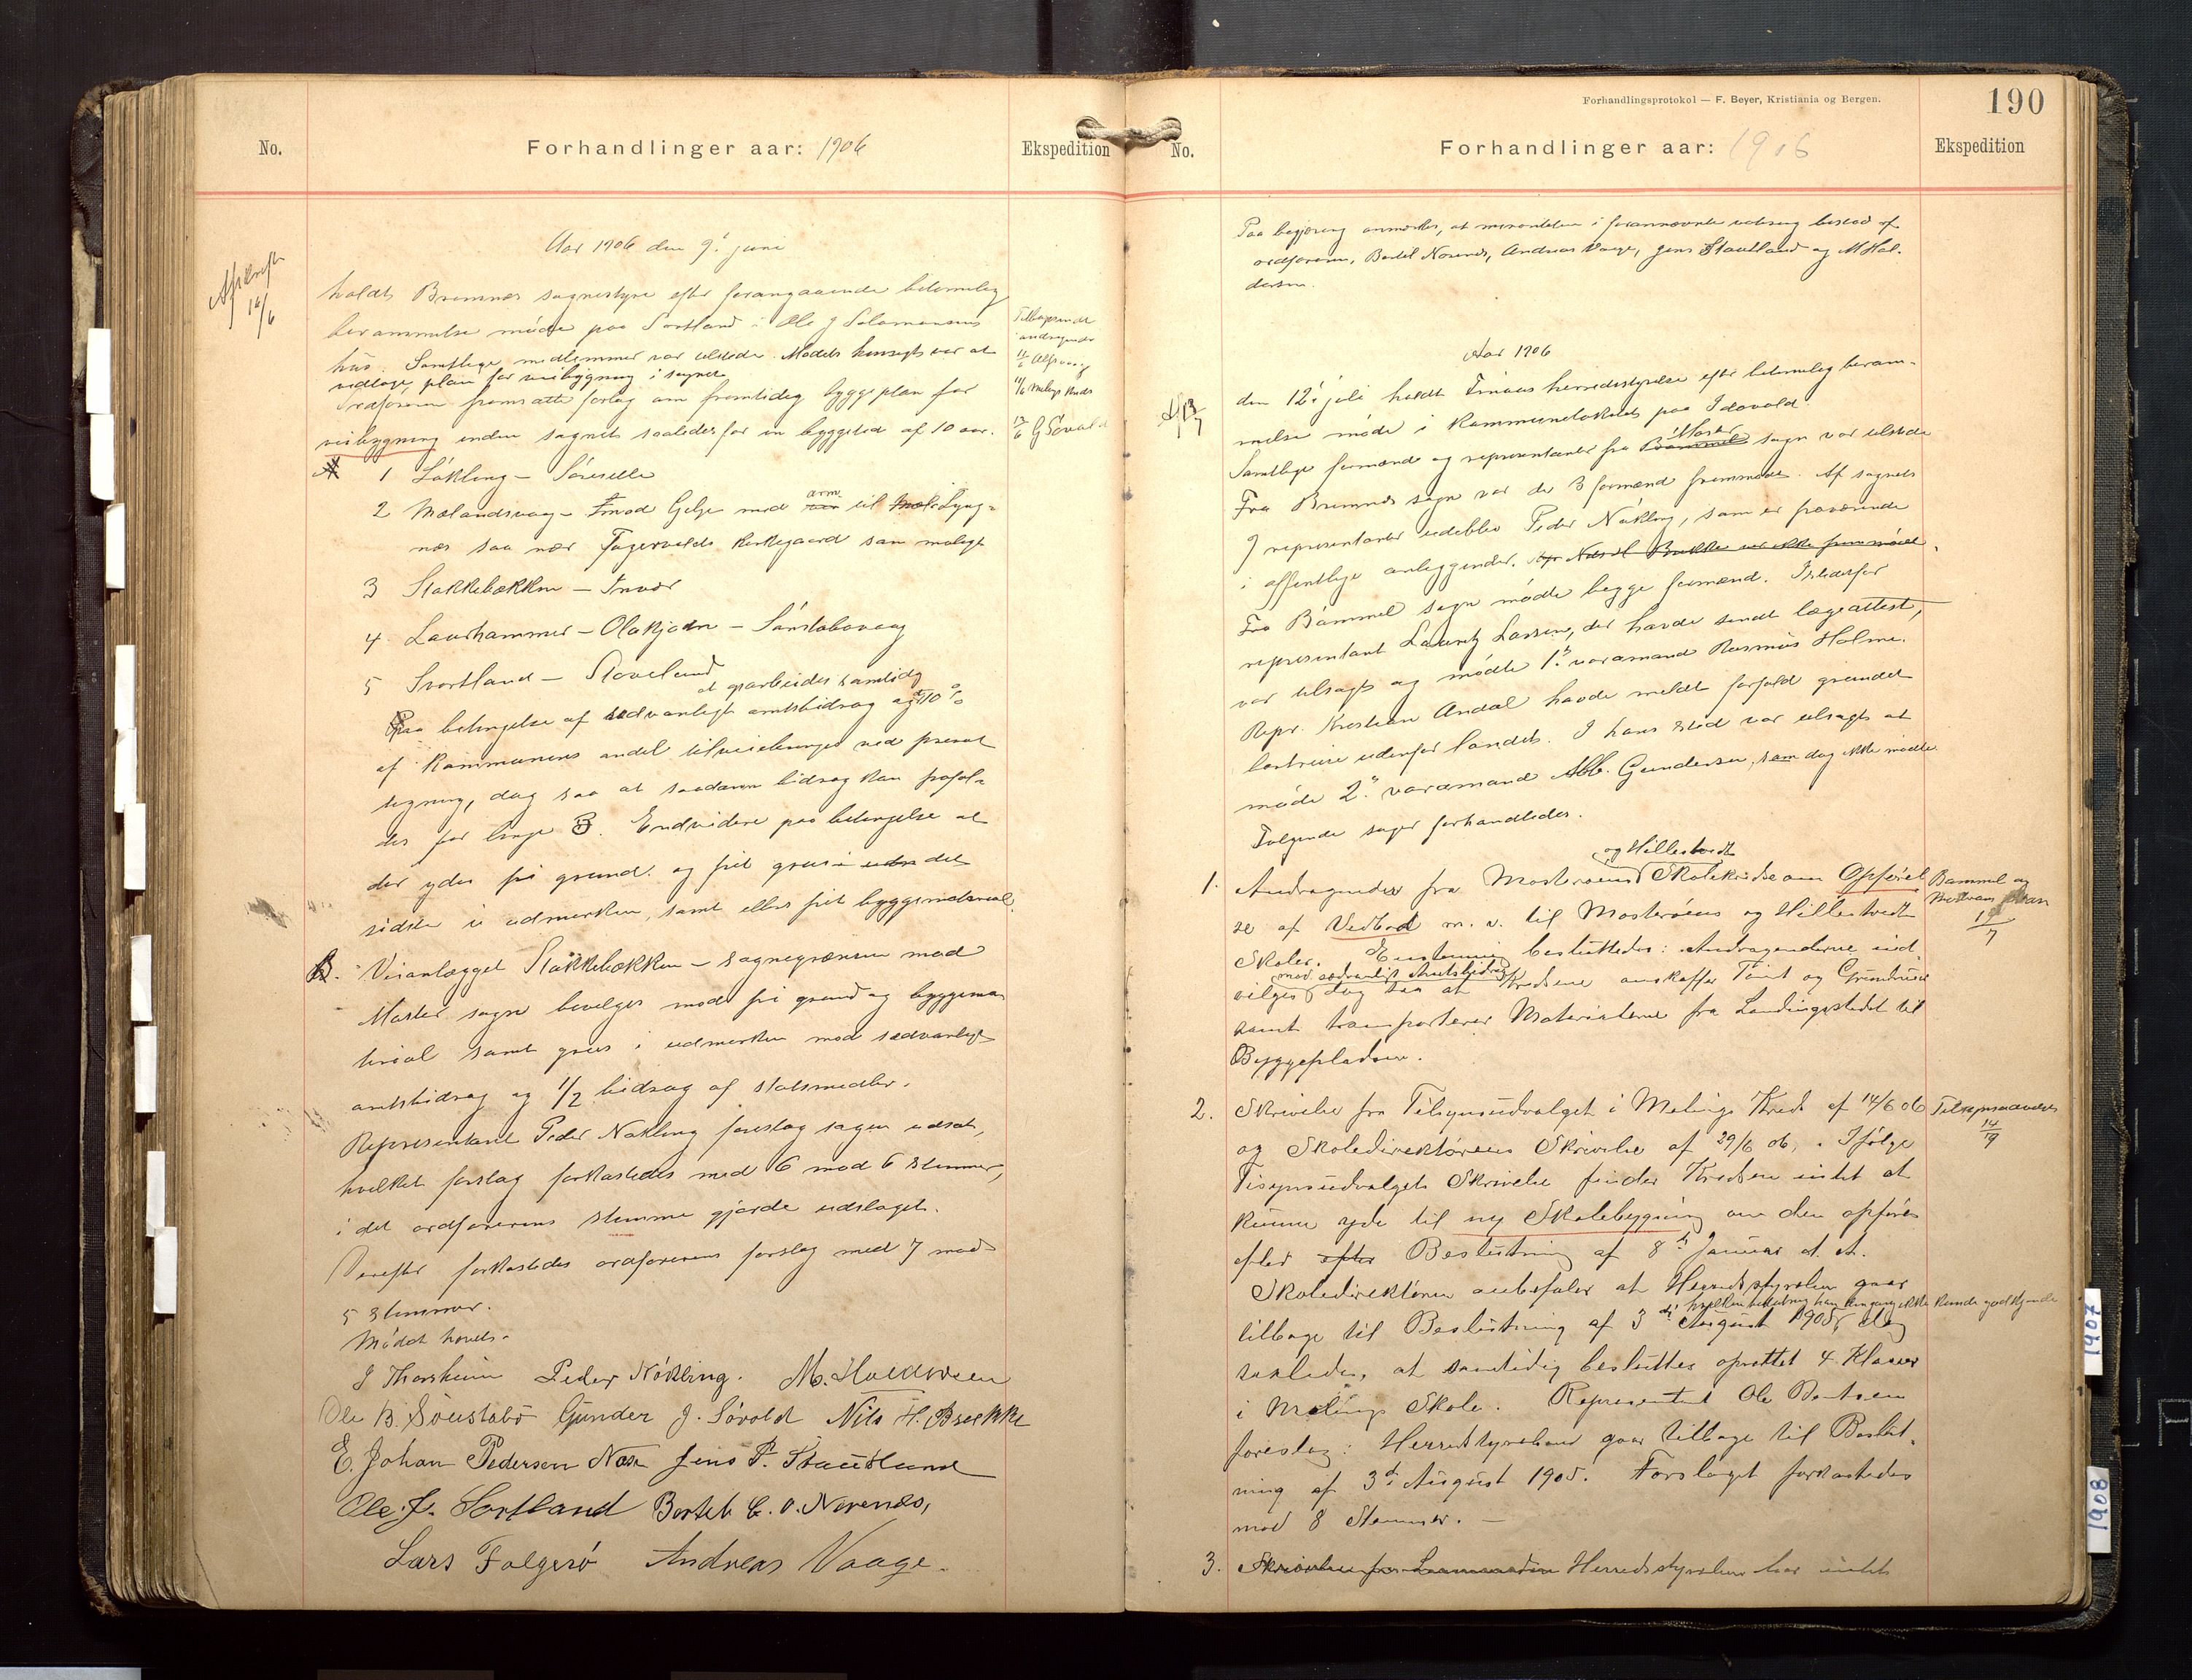 No.
Forhandlinger aar: 1906
Ekspedition
Aar 1906 den 9' juni
Afskrift
16/6
holdt Bremnes sognestyre efter forangaaende betimelig
berammelse møde paa Svortland i Ole J Salamonsens
hus. Samtlige medlemmer var tilstede. Mødets hensigt var at
vedtage plan for veibygning i sognet
Ordføreren fremsatte forslag om fremtidig byggeplan for
veibygning inden sognet saaledes for en byggetid af 10 aar.
11/6 Melings Kreds
13/6 G Søvold
A
1 Løkling – Søreide
2 Mælandsvaag – Innod Gilje med arm til Lyng-
nes saa nær Fagervolds kirkegaard som muligt
3 Stokkebækken – Innvær
4 Laurhammer – Olakjødn – Sønstabøvaag
5 Svortland – Stoveland
at oparbeides samtidig
Paa betingelse af sedvanligt amtsbidrag og at 10 %
af Kommunens andel tilveiebringes ved privat
tegning, dog saa at saadann bidrag kan frafal-
des for linje 3. Endvidere paa betingelse at
der ydes fri grund og frit grus i det
sidste i udmarken, samt ellers frit byggemateriale.
B. Veianlægget Stokkebækken – sognegrænsen mod
Moster sogn bevilges mod fri grund og byggema-
teriale samt grus i udmarken med sedvanligt
amtsbidrag og 1/2 bidrag af statsmidler.
Representant Peder Nøkling foreslog sagen udsat,
hvilket forslag forkastedes med 6 mod 6 stemmer,
i det ordførerens stemme gjorde udslaget.
Derefter forkastedes ordførerens forslag med 7 mod
5 stemmer.
Mødet hævet.
J Thorsheim Peder Nökling. M. Halderseen
Ole B. Sönstabö Gunder J. Sövold Nils H. Brekke
E. Johan Pedersen Næse Jens P. Stautland
Ole J. Sortland Bertel C. O. Norenes,
Lars Folgerö Andreas Vaage.
Forhandlingsprotokol — F. Beyer, Kristiania og Bergen.
190
No.
Forhandlinger aar: 1906
Ekspedition
Paa begjæring anmerkes, at minoriteten i forannævnte votering bestod af
ordføreren, Bertel Norenes, Andreas Vaage, Jens Stautland og M Hal-
dersen.
Aar 1906
den 12' juli holdt Finaas herredsstyrelse efter betimelig beram-
melse møde i Kommunelokalet paa Idavold.
Samtlige formænd og repræsentanter fra Bømmel Moster sogn var tilstede
Fra Bremnes sogn var de 3 formænd fremmødt. Af sognets
9 representanter udeblev Peder Nøkling, som er fraværende
i offentlige anliggender. Nils H Brekke var ikke fremmødt.
Fra Bømmel sogn mødte begge formænd. Istedetfor
representant Lauritz Larsen, der havde sendt lægeattest,
var tilsagt og mødte 1.' varamand Rasmus Holme.
Repr. Kristian Andal havde meldt forfald grundet
bortreise udenfor landet. I hans sted var tilsagt at
møde 2.' varamand Abb. Gundersen, som dog ikke mødte.
Følgende sager forhandledes.
og Hillestvedt
1. Andragender fra Mosterøens Skolekredse om Opførel-
se af Vedbod m. v. til Mosterøens og Hillestvedt
Skoler. Enstemmig besluttedes: Andragenderne ind-
med sædvanligt Amtsbidrag
vilges dog saa at Kredsene anskaffer Tomt og Grundmur
samt transporterer Materialerne fra Landingsstedet til
Byggepladsen.
Bømmel og
17/7
2. Skrivelse fra Tilsynsudvalget i Melings Kreds af 14/6 06
og Skoledirektørens Skrivelse af 29/6 06, . Ifølge
Tisynsudvalgets Skrivelse finder Kredsen intet at
kunne yde til ny Skolebygning om den opføres
efter efter Beslutning af 8d Januar d. A.
Skoledirektøren anbefaler at Herredsstyrelsen gaar
hvilken beslutning han dengang ikke kunde godkjende
tilbage til Beslutning af 3d August 1905, dog
saaledes, at samtidig besluttes oprettet 4 Klasser
i Melings Skole. Representant Ole Bentsen
foreslog: Herredstyrelsen gaar tilbage til Beslut-
ning af 3d August 1905. Forslaget forkastedes
mod 8 Stemmer. –
Tilsynsudvalget
14/9
3. Skrivelse fra Lensmanden Herredsstyrelsen har intet
1907
1908